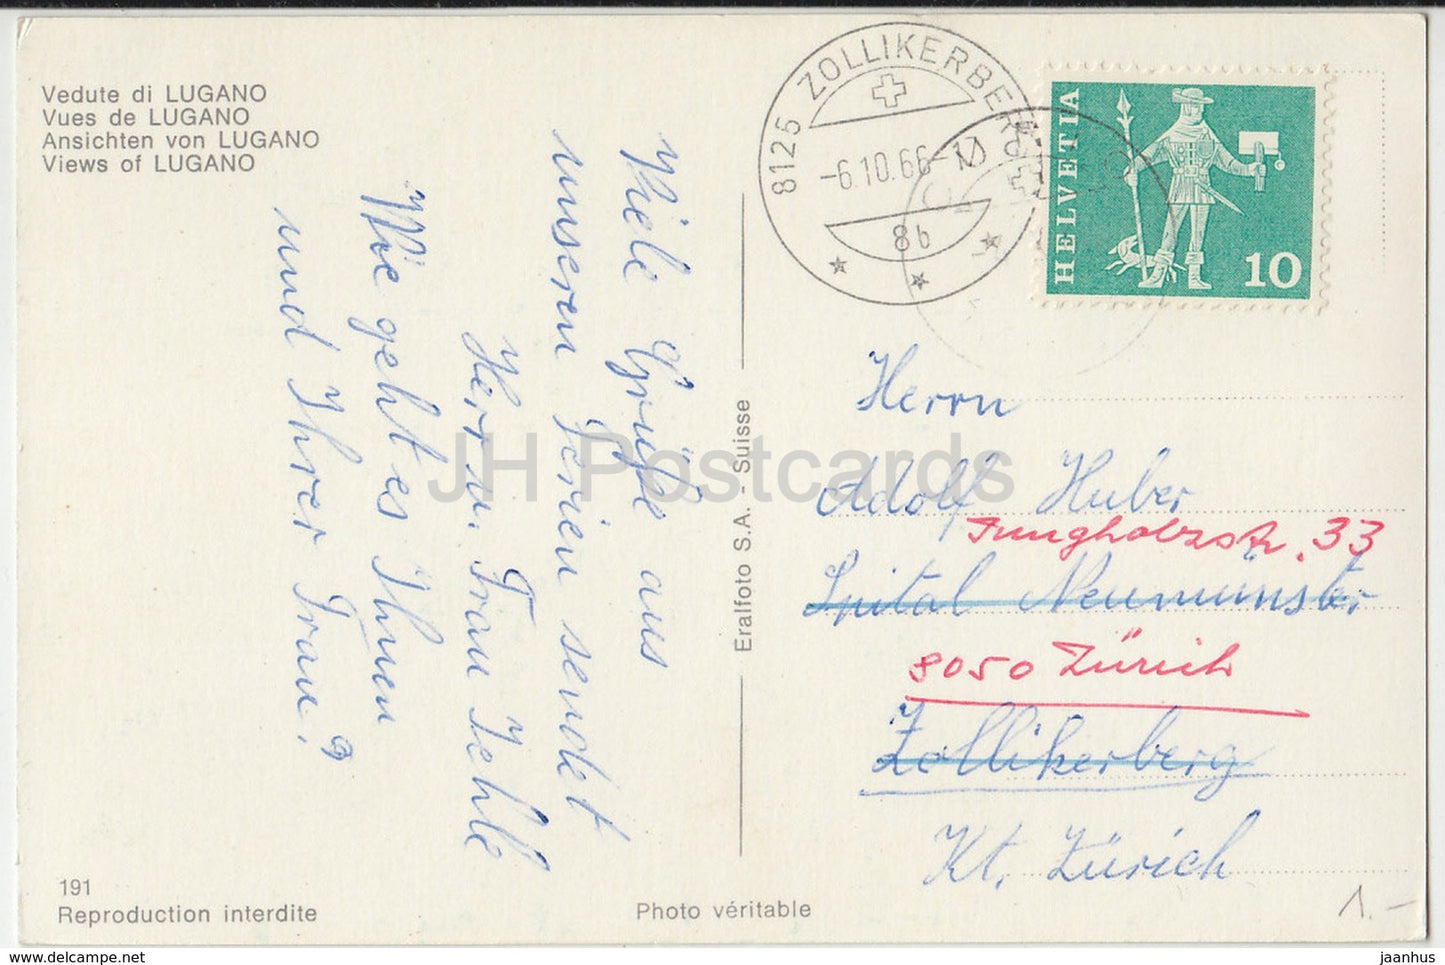 Vedute di LUGANO
Vues de LUGANO
Ansichten von LUGANO
Views of LUGANO
Viele Grüße aus
unseren Ferien sendet
Herr u. Frau Jehle
Wie geht es Ihnen
und Ihrer Frau?
191
Reproduction interdite
Eralfoto S.A. - Suisse
Photo véritable
8125 ZOLLIKERBERG
-6.10.66-
8b
HELVETIA
10
Herrn
Adolf Huber
Jungholzstr. 33
Spital Neumünster
8050 Zürich
Zollikerberg
Kt. Zürich
1.-
JH Postcards
www.delcampe.net
jaanhus